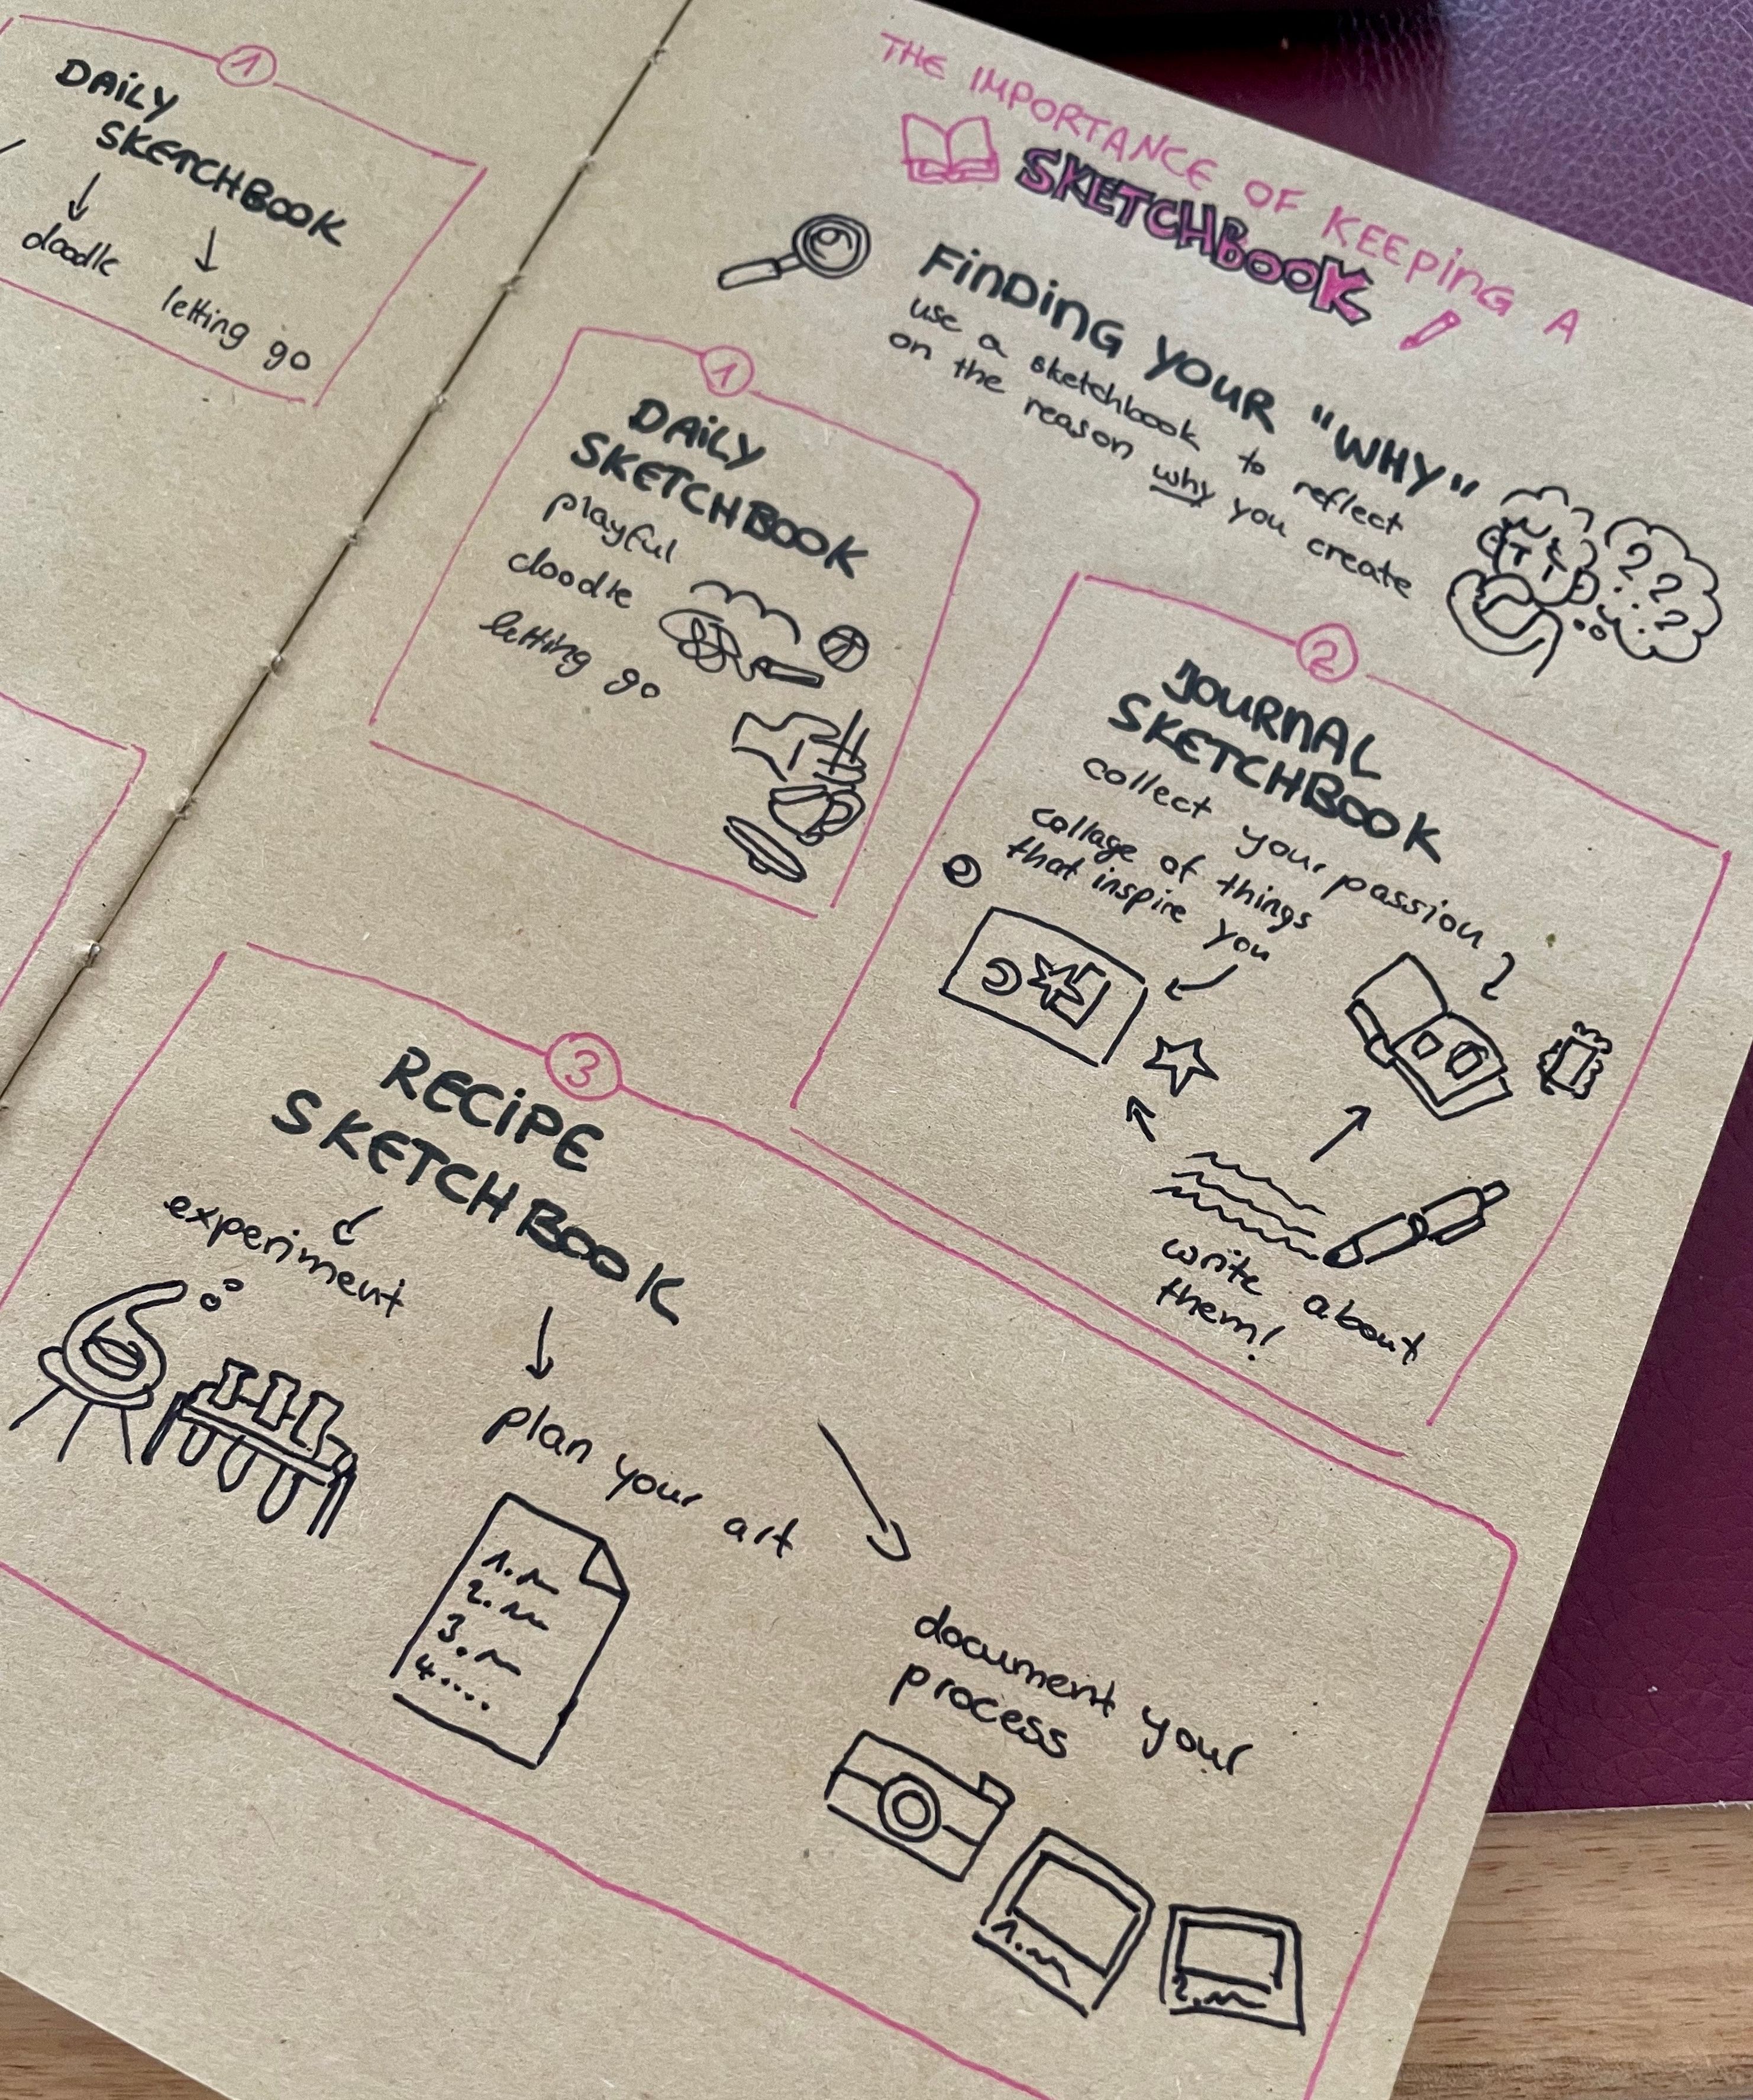 1
DAILY
SKETCHBOOK
doodle
letting go
THE IMPORTANCE OF KEEPING A
SKETCHBOOK
FINDING YOUR "WHY"
use a sketchbook to reflect
on the reason why you create
? ? ?
1
DAILY
SKETCHBOOK
playful
doodle
letting go
2
JOURNAL
SKETCHBOOK
collect your passion
collage of things
that inspire you
write about
them!
3
RECIPE
SKETCHBOOK
experiment
plan your art
1.
2.
3.
4....
document your
process
1.
2.